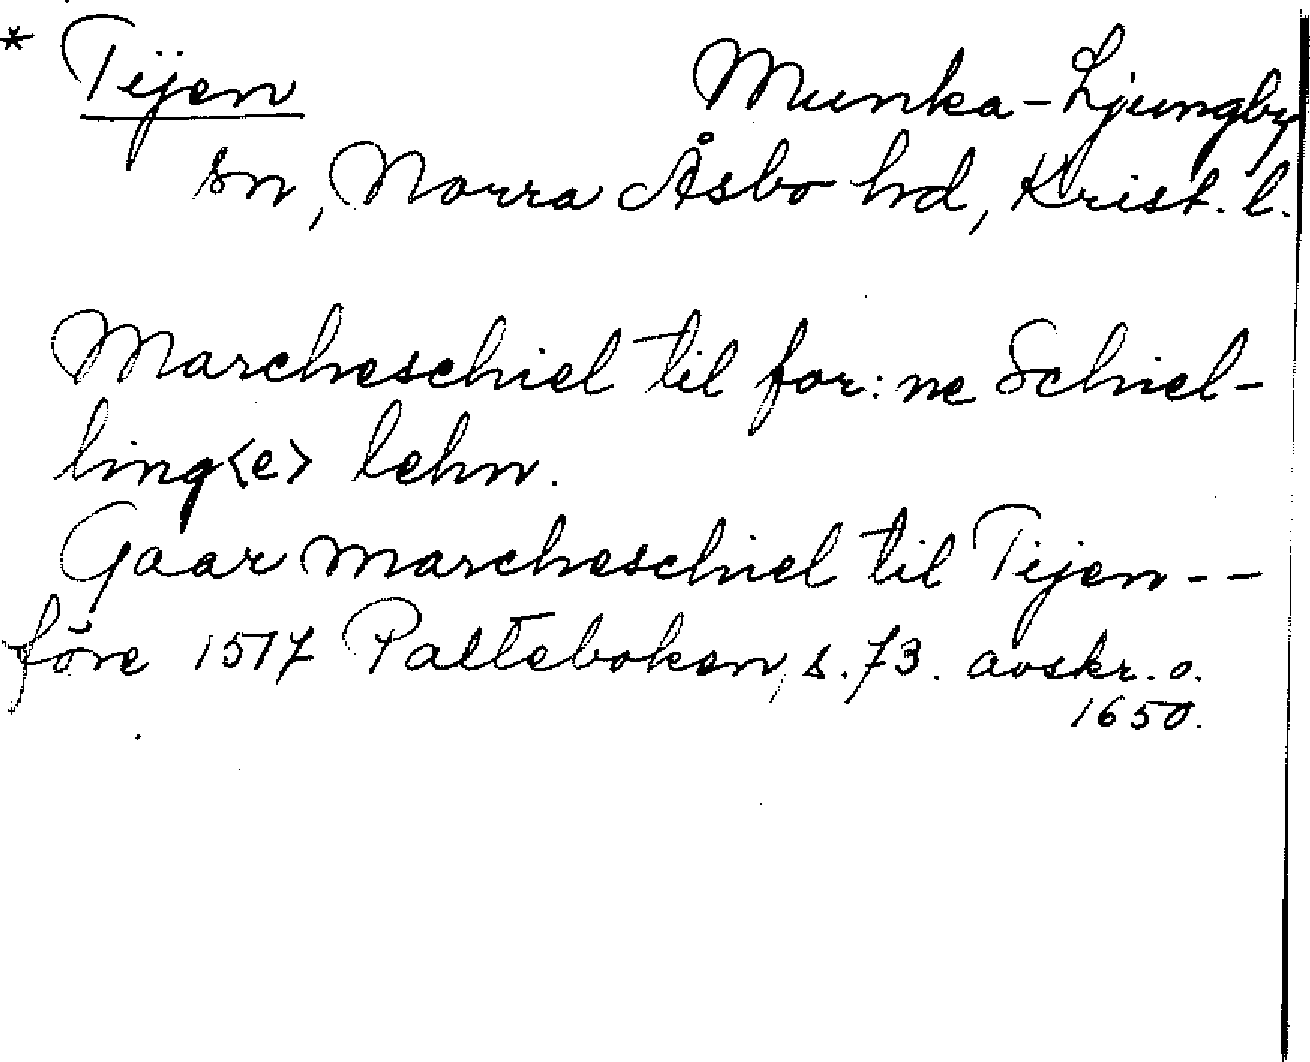 * Tijen Munka-Ljungby
sn, Norra Åsbo hd, Krist. l.
Marcheschiel til for:ne Schiel-
ling<e> lehn.
Gaar marcheschiel til Tijen--
före 1517 Palteboken, s. 73. avskr. o.
1650.